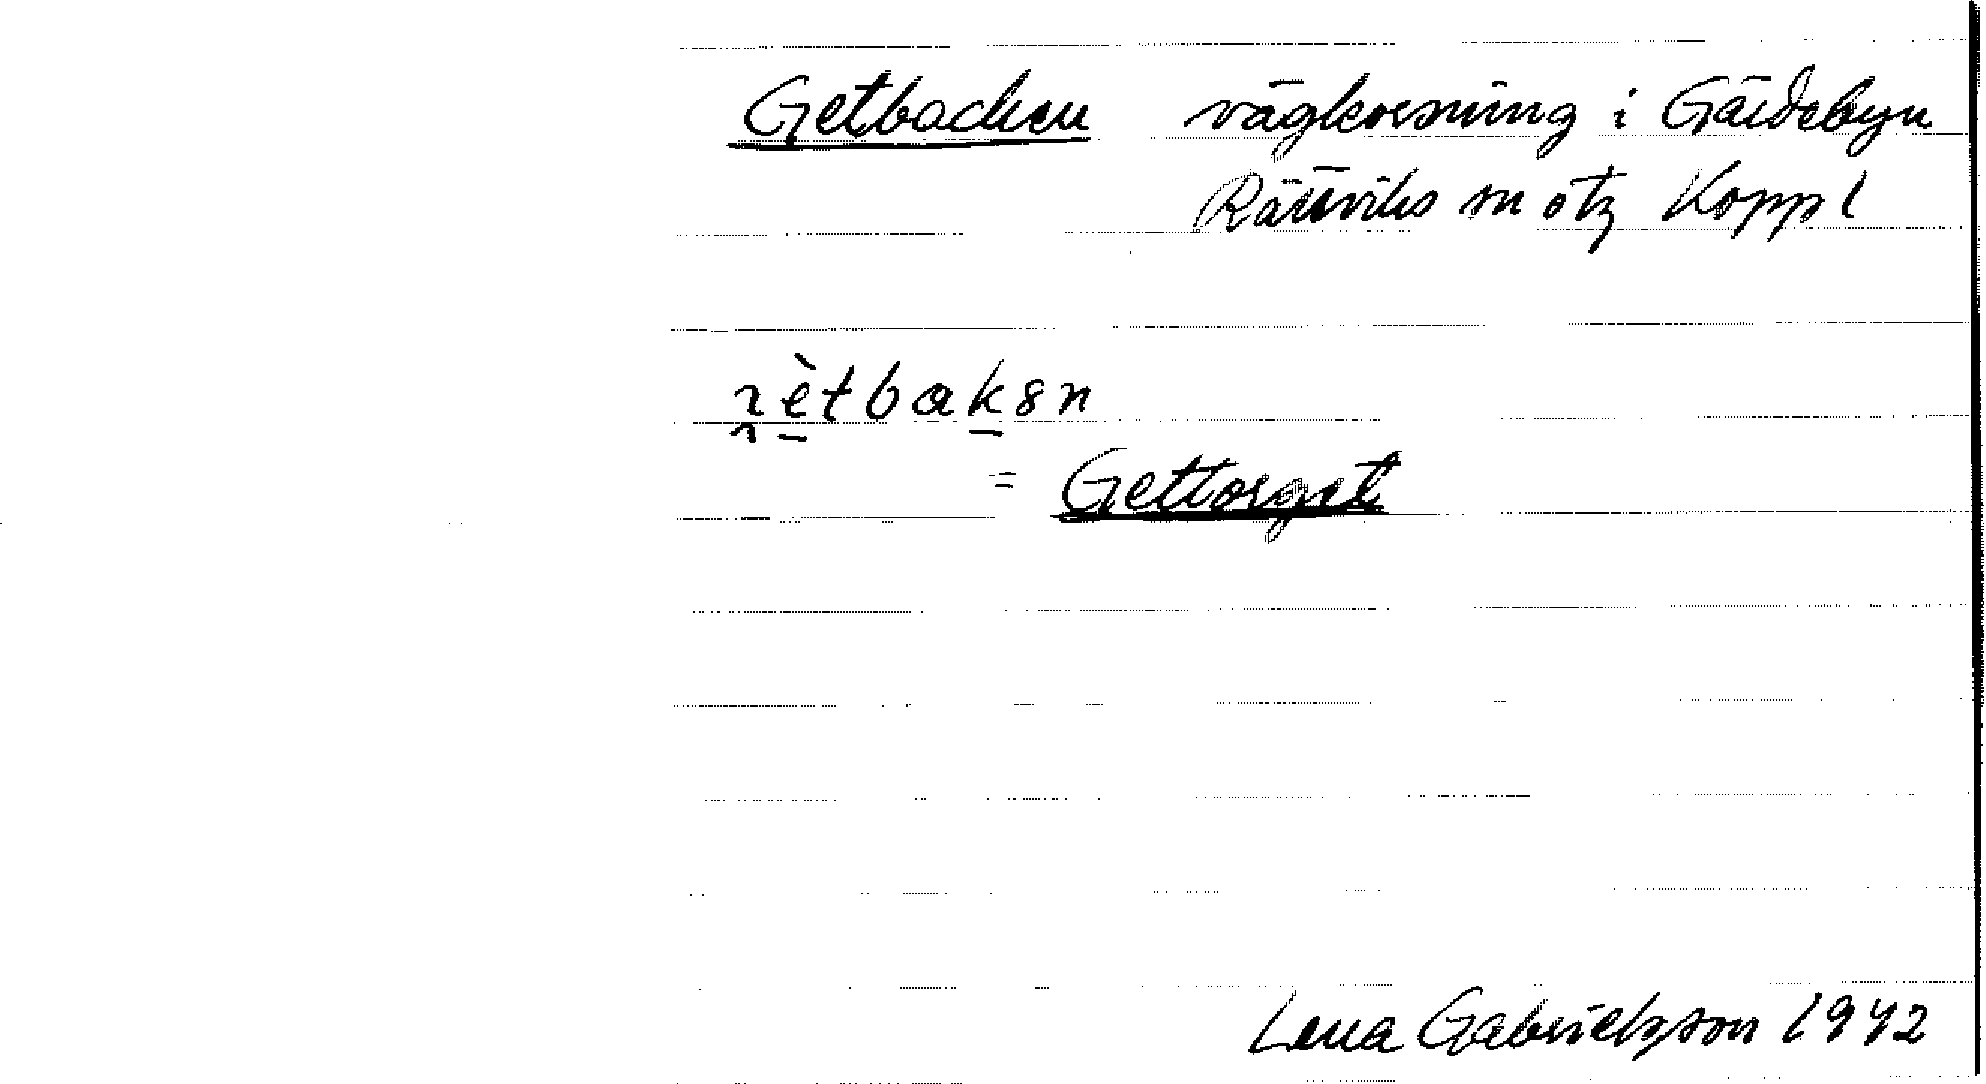 Getbacken vägkorsning i Gärdebyn
Rättviks sn o tg Koppl
= Gettorget
Lena Gabrielsson 1942